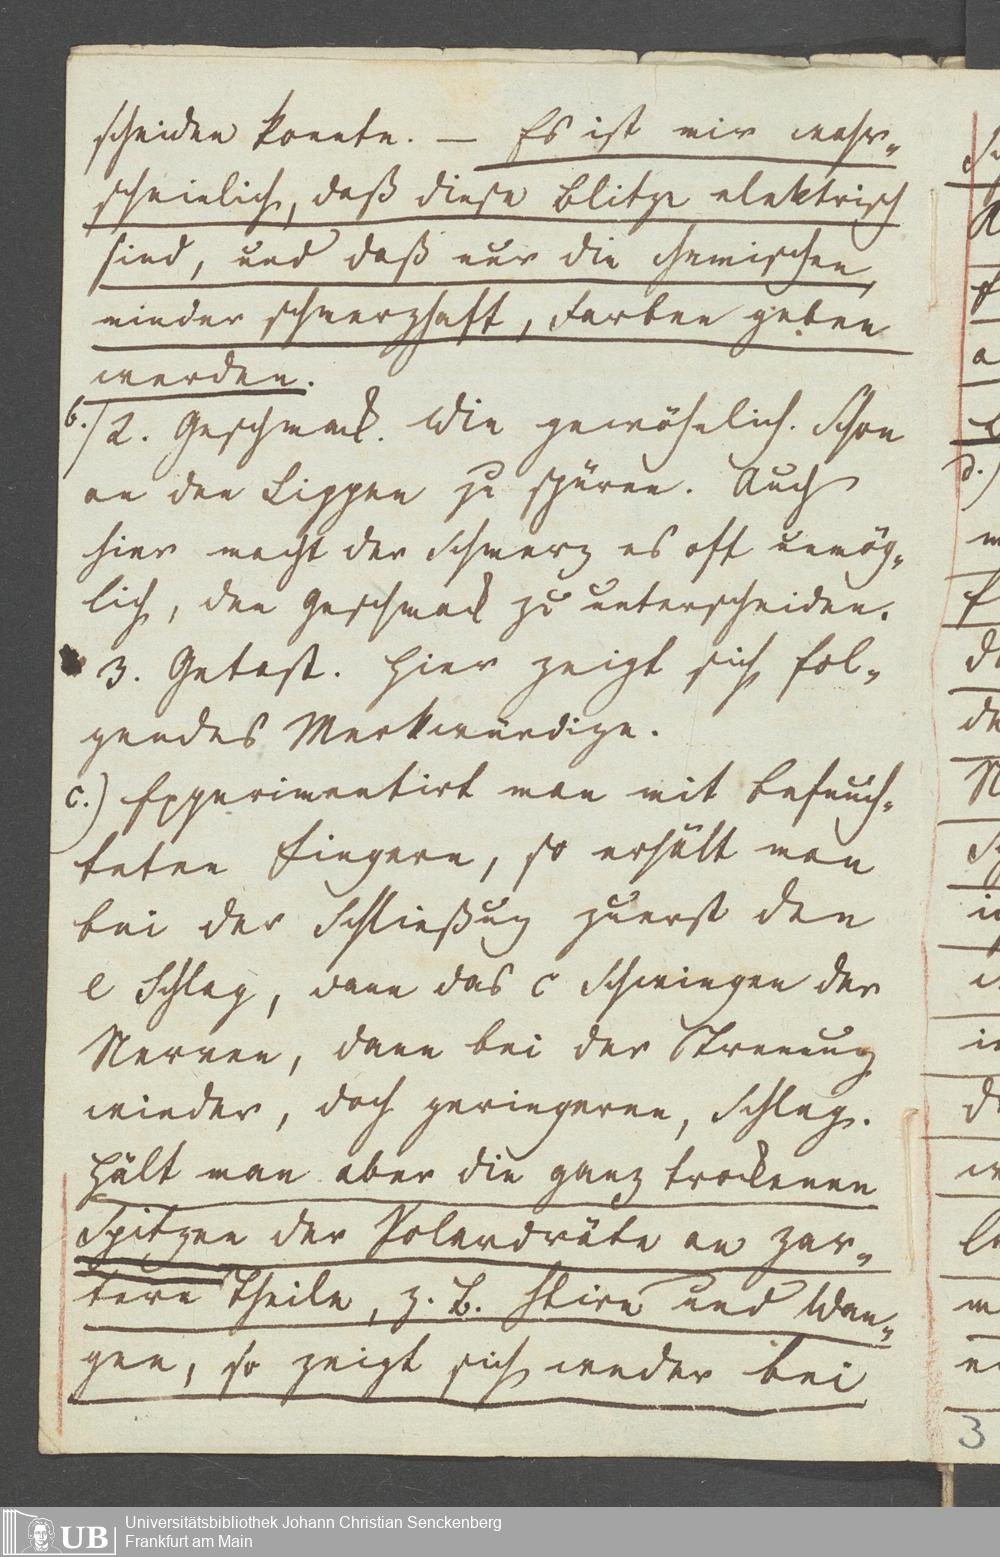 scheiden konnte. — Es ist mir wahr-
scheinlich, daß diese Blitze elektrisch
sind, und daß nur die chemischen,
minder schmerzhaft, Farben geben
werden.
b.) 2. Geschmack. Wie gewöhnlich. Schon
an den Lippen zu spüren. Auch
hier macht der Schmerz es oft unmög-
lich, den Geschmack zu unterscheiden.
3. Getast. Hier zeigt sich fol-
gendes Merkwürdige.
c.) Experimentirt man mit befeuch-
teten Fingern, so erhält man
bei der Schließung zuerst den
e Schlag, dann das c Schwingen der
Nerven, dann bei der Trennung
wieder, doch geringeren, Schlag.
Hält man aber die ganz trockenen
Spitzen der Polardräte an zar-
tere Theile, z. B. Stirn und Wan-
gen, so zeigt sich weder bei
d.)
3
UB Universitätsbibliothek Johann Christian Senckenberg
Frankfurt am Main